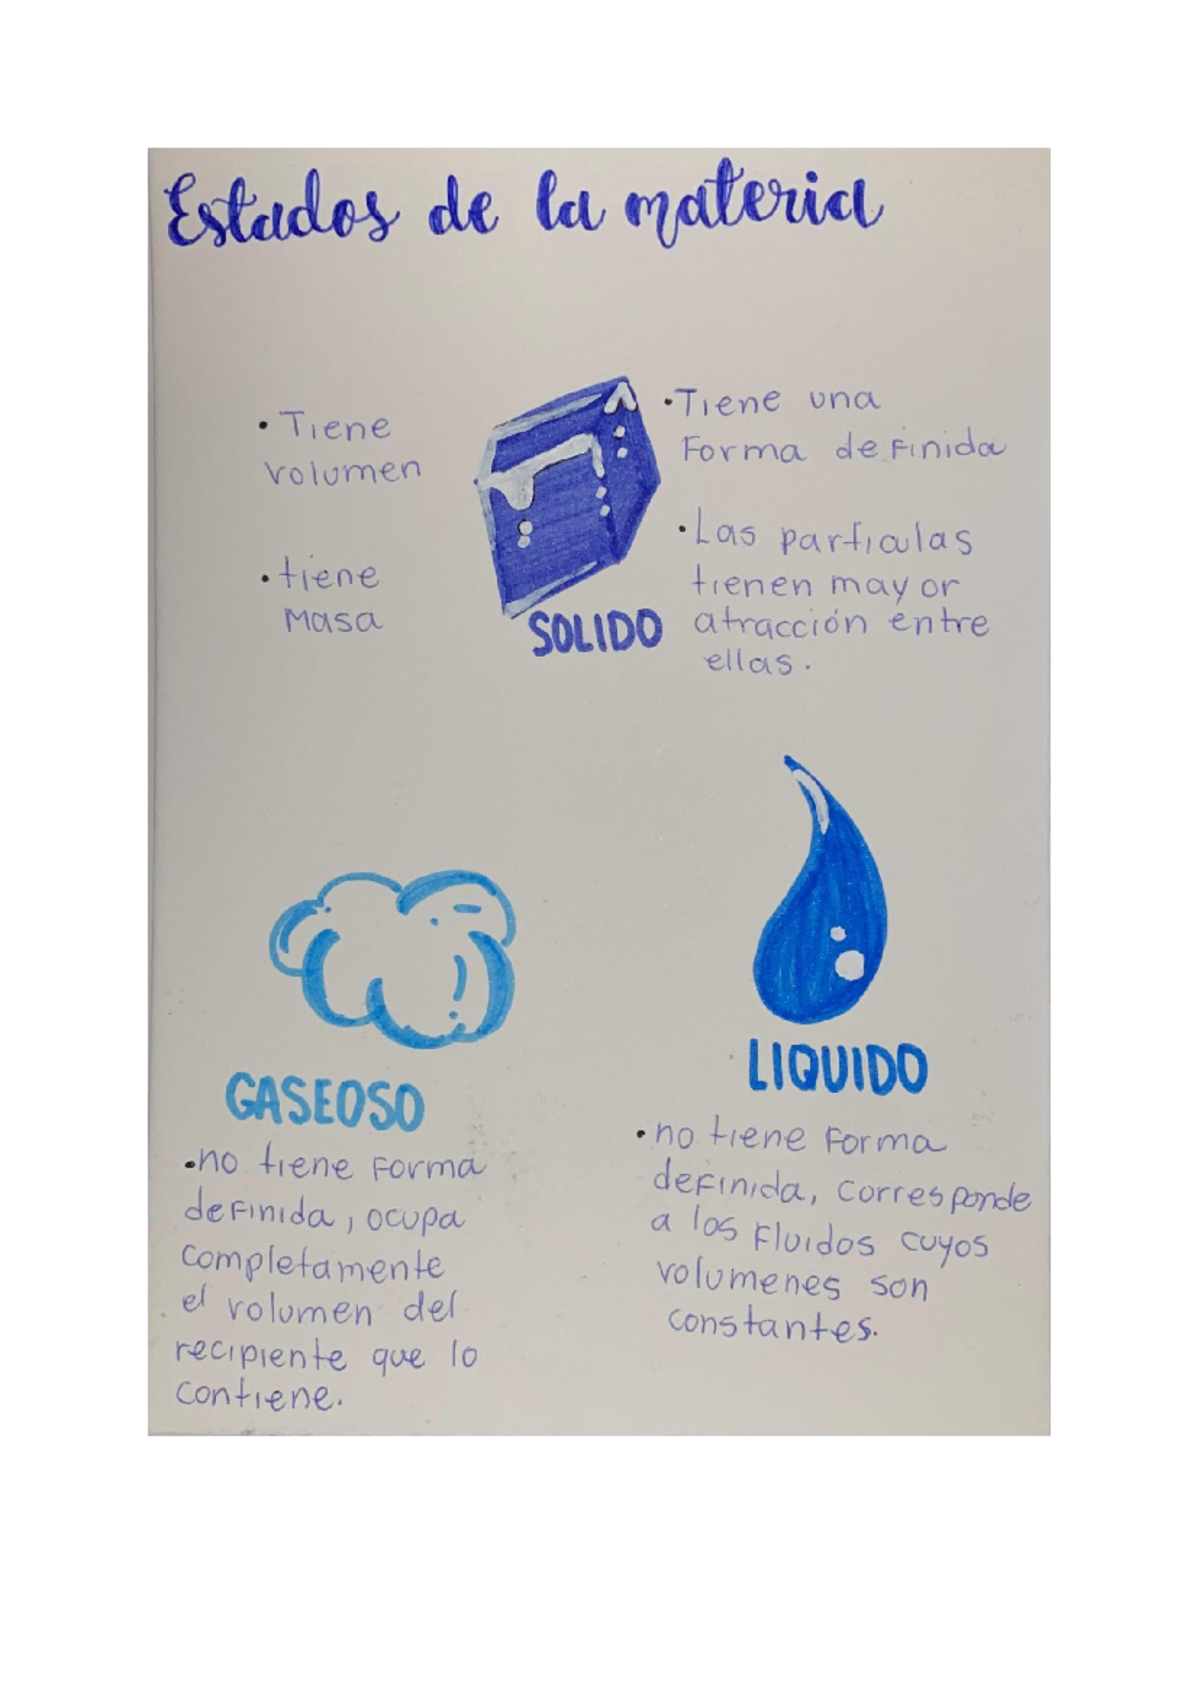 Estados de la materia
• Tiene
volumen
• tiene
masa
• Tiene una
Forma definida
• Las partículas
tienen mayor
atracción entre
ellas.
SOLIDO
GASEOSO
• no tiene Forma
definida, ocupa
completamente
el volumen del
recipiente que lo
contiene.
LIQUIDO
• no tiene Forma
definida, corresponde
a los Fluidos cuyos
volumenes son
constantes.